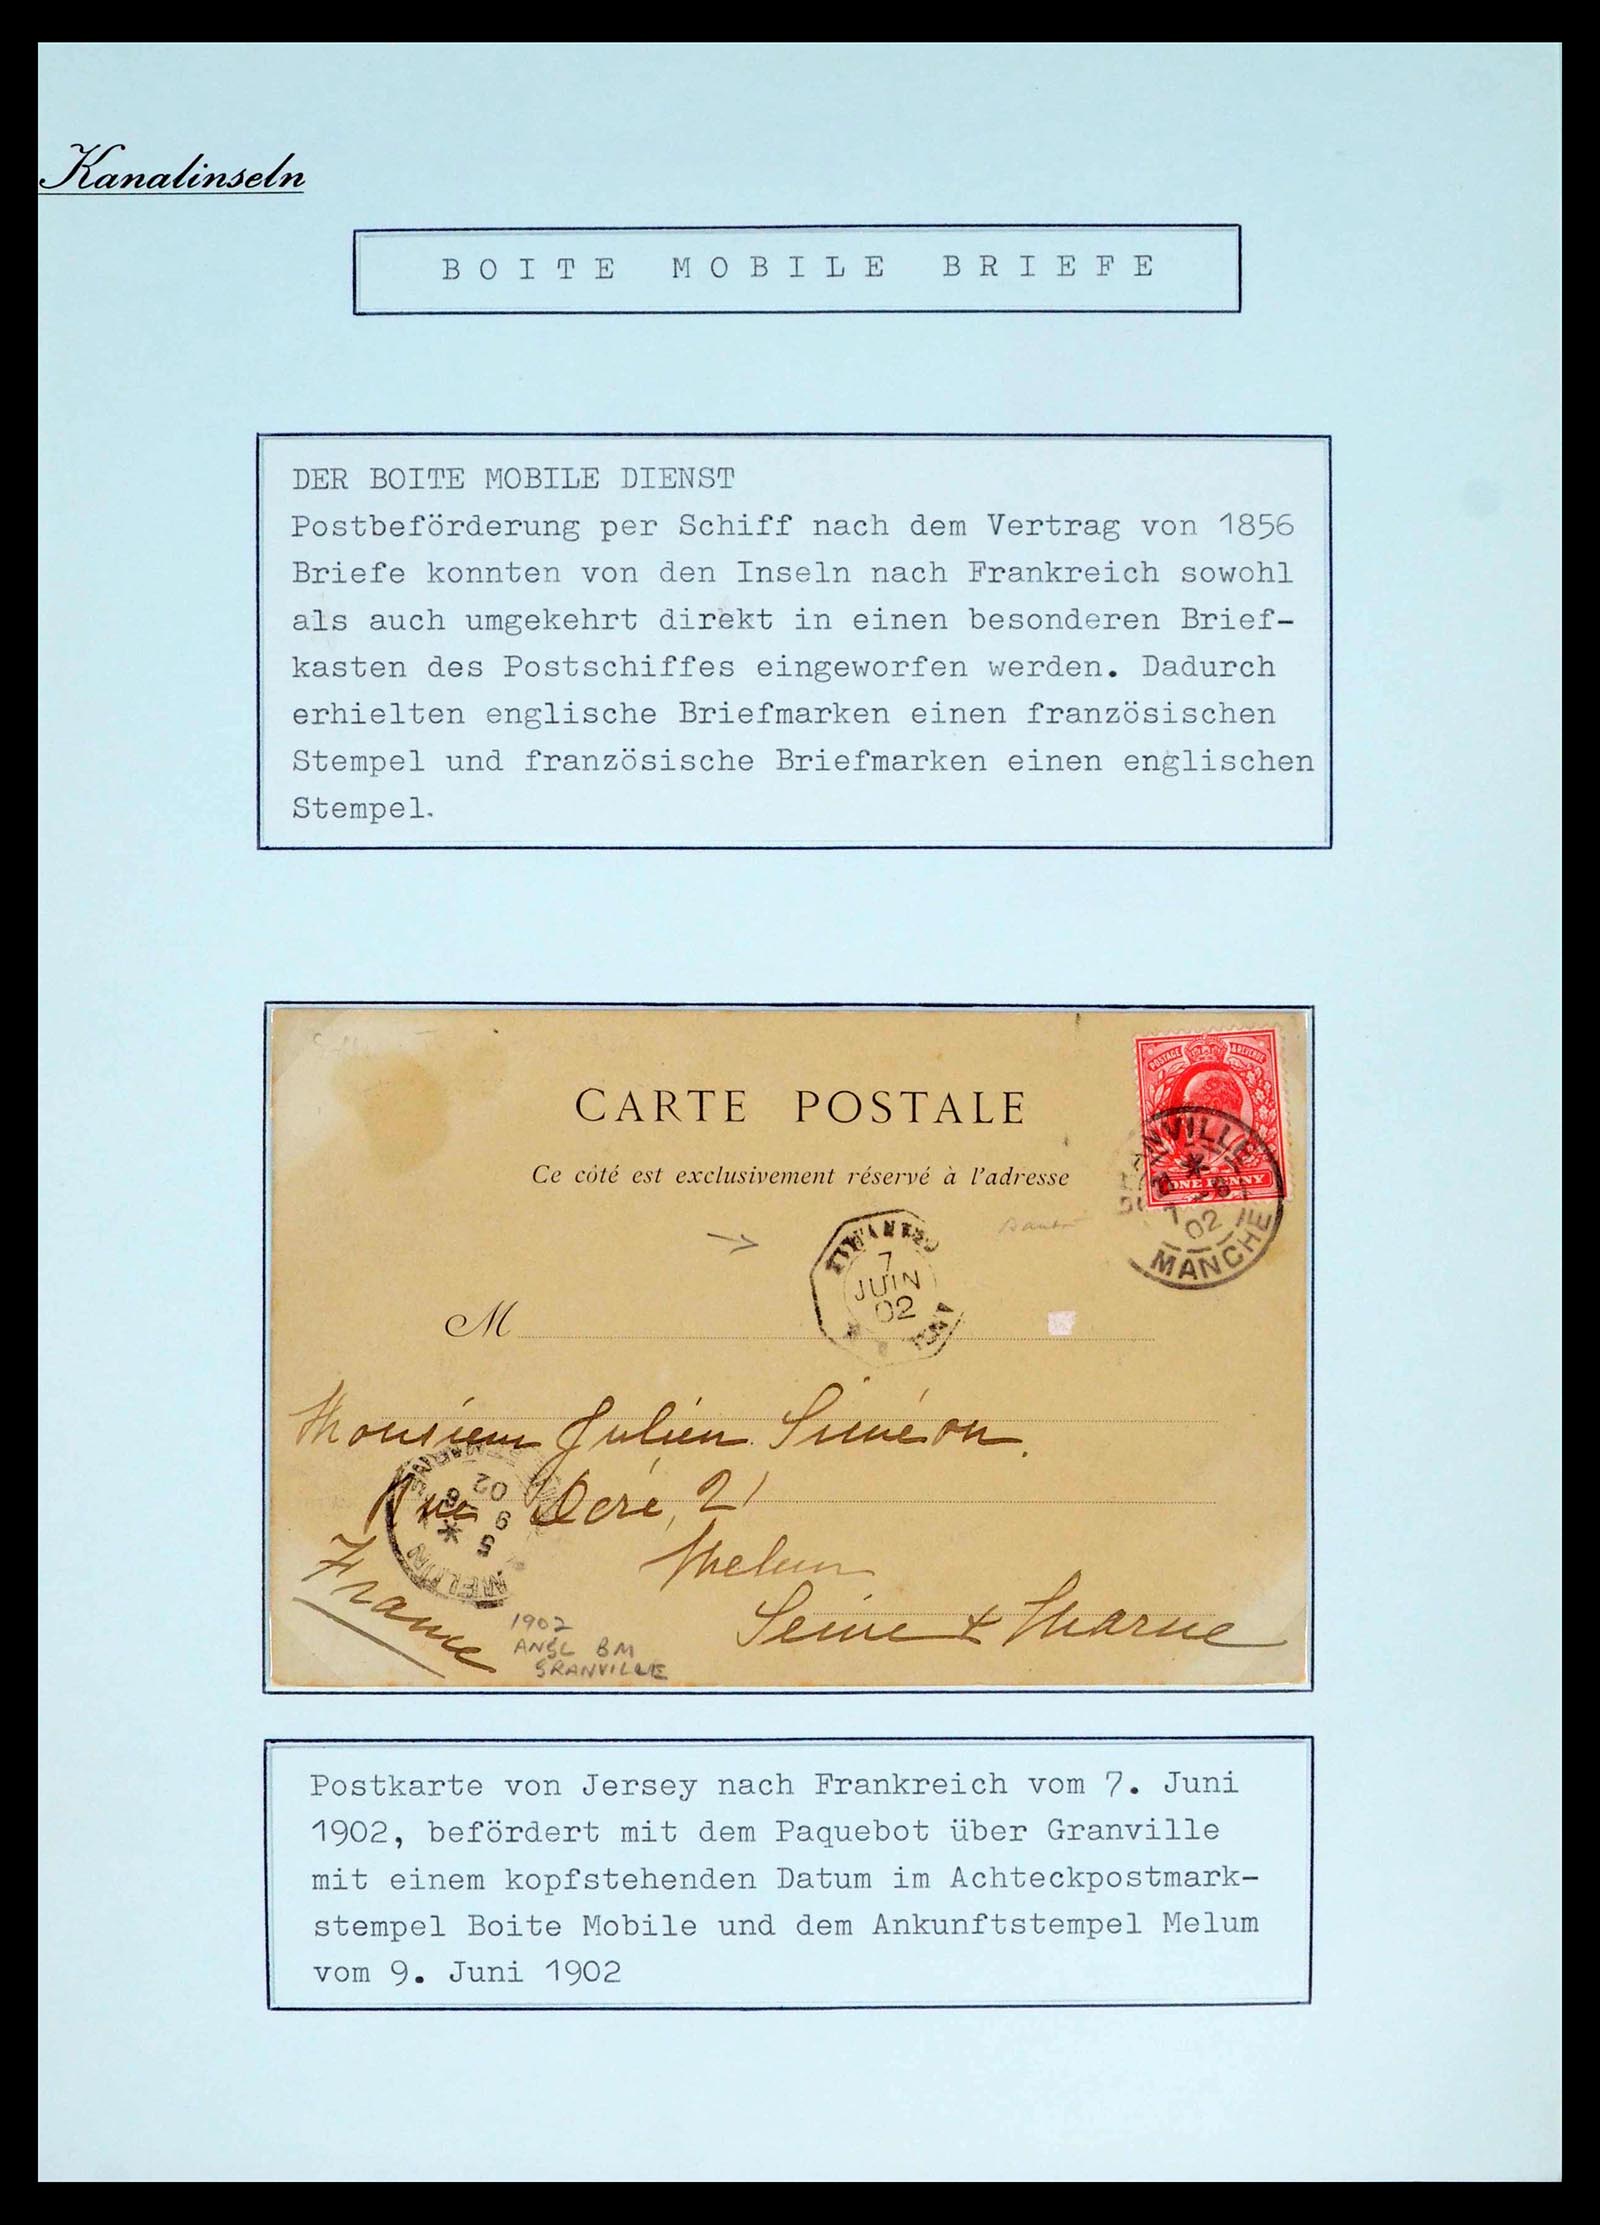 Kanalinseln
BOITE MOBILE BRIEFE
DER BOITE MOBILE DIENST
Postbeförderung per Schiff nach dem Vertrag von 1856
Briefe konnten von den Inseln nach Frankreich sowohl
als auch umgekehrt direkt in einen besonderen Brief-
kasten des Postschiffes eingeworfen werden. Dadurch
erhielten englische Briefmarken einen französischen
Stempel und französische Briefmarken einen englischen
Stempel.
CARTE POSTALE
Ce côté est exclusivement réservé à l'adresse
POSTAGE & REVENUE
ONE PENNY
GRANVILLE
02
MANCHE
7
JUIN
02
M
Monsieur Julien Siméon.
Rue Doré, 21
Melun
Seine & Marne
France
MELUN
5
9 6
02
1902
ANGL BM
GRANVILLE
Postkarte von Jersey nach Frankreich vom 7. Juni
1902, befördert mit dem Paquebot über Granville
mit einem kopfstehenden Datum im Achteckpostmark-
stempel Boite Mobile und dem Ankunftstempel Melum
vom 9. Juni 1902